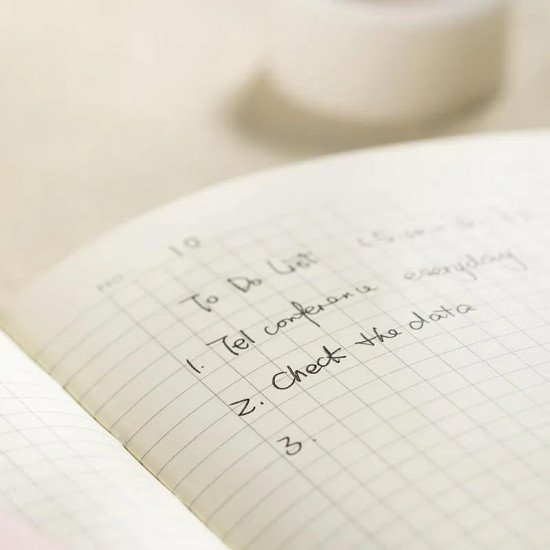 10
To Do List
1. Tel conference everyday
2. Check the data
3.